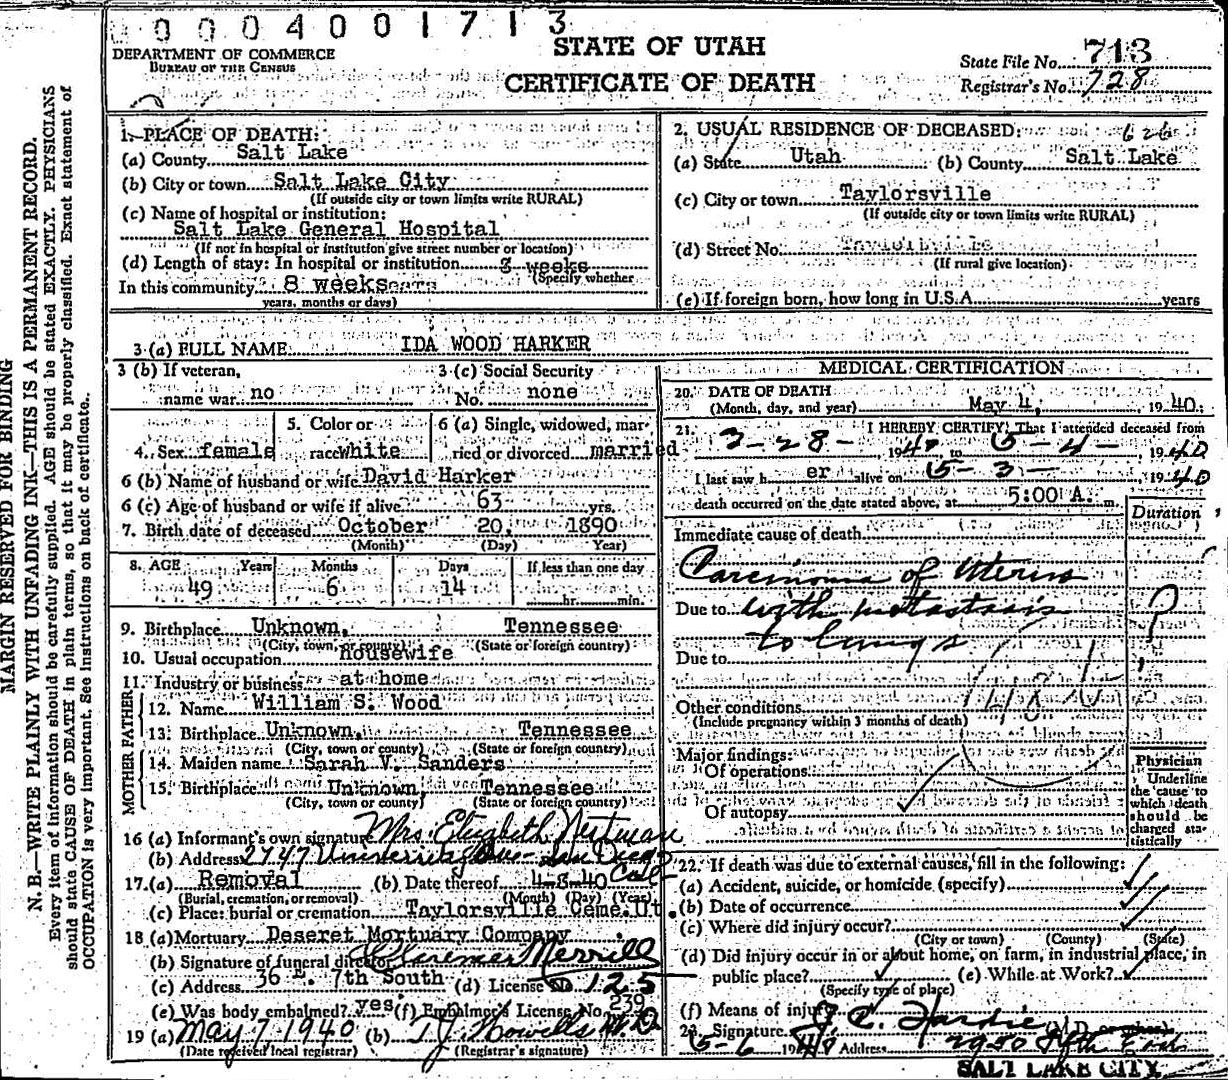 00004001713
DEPARTMENT OF COMMERCE
BUREAU OF THE CENSUS
STATE OF UTAH
CERTIFICATE OF DEATH
State File No. 713
Registrar's No. 728
MARGIN RESERVED FOR BINDING
N. B.—WRITE PLAINLY WITH UNFADING INK—THIS IS A PERMANENT RECORD.
Every item of information should be carefully supplied. AGE should be stated EXACTLY. PHYSICIANS
should state CAUSE OF DEATH in plain terms, so that it may be properly classified. Exact statement of
OCCUPATION is very important. See instructions on back of certificate.
1. PLACE OF DEATH:
(a) County Salt Lake
(b) City or town Salt Lake City
(If outside city or town limits write RURAL)
(c) Name of hospital or institution:
Salt Lake General Hospital
(If not in hospital or institution give street number or location)
(d) Length of stay: In hospital or institution 8 weeks
(Specify whether
In this community 8 weeks
years, months or days)
2. USUAL RESIDENCE OF DECEASED: 626
(a) State Utah (b) County Salt Lake
(c) City or town Taylorsville
(If outside city or town limits write RURAL)
(d) Street No. Taylorsville
(If rural give location)
(e) If foreign born, how long in U.S.A. years
3 (a) FULL NAME IDA WOOD HARKER
3 (b) If veteran,
name war no
3 (c) Social Security
No. none
4. Sex female
5. Color or
race white
6 (a) Single, widowed, mar-
ried or divorced married
6 (b) Name of husband or wife David Harker
6 (c) Age of husband or wife if alive 63 yrs.
7. Birth date of deceased October 20, 1890
(Month) (Day) Year)
8. AGE Years Months Days If less than one day
49 6 14 hr. min.
9. Birthplace Unknown, Tennessee
(City, town, or county) (State or foreign country)
10. Usual occupation housewife
11. Industry or business at home
FATHER
12. Name William S. Wood
13. Birthplace Unknown, Tennessee
(City, town or county) (State or foreign country)
MOTHER
14. Maiden name Sarah V. Sanders
15. Birthplace Unknown, Tennessee
(City, town or county) (State or foreign country)
16 (a) Informant's own signature Mrs. Elizabeth
(b) Address 2747 University Ave - San Diego Cal
17. (a) Removal (b) Date thereof 4-8-40
(Burial, cremation, or removal) (Month) (Day) (Year)
(c) Place: burial or cremation Taylorsville Ceme. Ut.
18 (a) Mortuary Deseret Mortuary Company
(b) Signature of funeral director Merrill
(c) Address 36 E. 7th South (d) License No. 125
(e) Was body embalmed? yes (f) Embalmer's License No. 239
19 (a) May 7, 1940 (b) T.J. Howells M.D.
(Date received local registrar) (Registrar's signature)
MEDICAL CERTIFICATION
20. DATE OF DEATH
(Month, day, and year) May 4, 1940
21. I HEREBY CERTIFY, That I attended deceased from
3-28- 1940 to 5-4- 1940
I last saw her alive on 5-3- 1940
death occurred on the date stated above, at 5:00 A. m.
Duration
Immediate cause of death
Carcinoma of Uterus
Due to with metastasis
to lungs
?
Due to
Other conditions
(Include pregnancy within 3 months of death)
Major findings:
Of operations
Of autopsy
Physician
Underline
the cause to
which death
should be
charged sta-
tistically
22. If death was due to external causes, fill in the following:
(a) Accident, suicide, or homicide (specify)
(b) Date of occurrence
(c) Where did injury occur?
(City or town) (County) (State)
(d) Did injury occur in or about home, on farm, in industrial place, in
public place? (e) While at Work?
(Specify type of place)
(f) Means of injury
23. Signature J. C.
5-6 1940 Address
SALT LAKE CITY